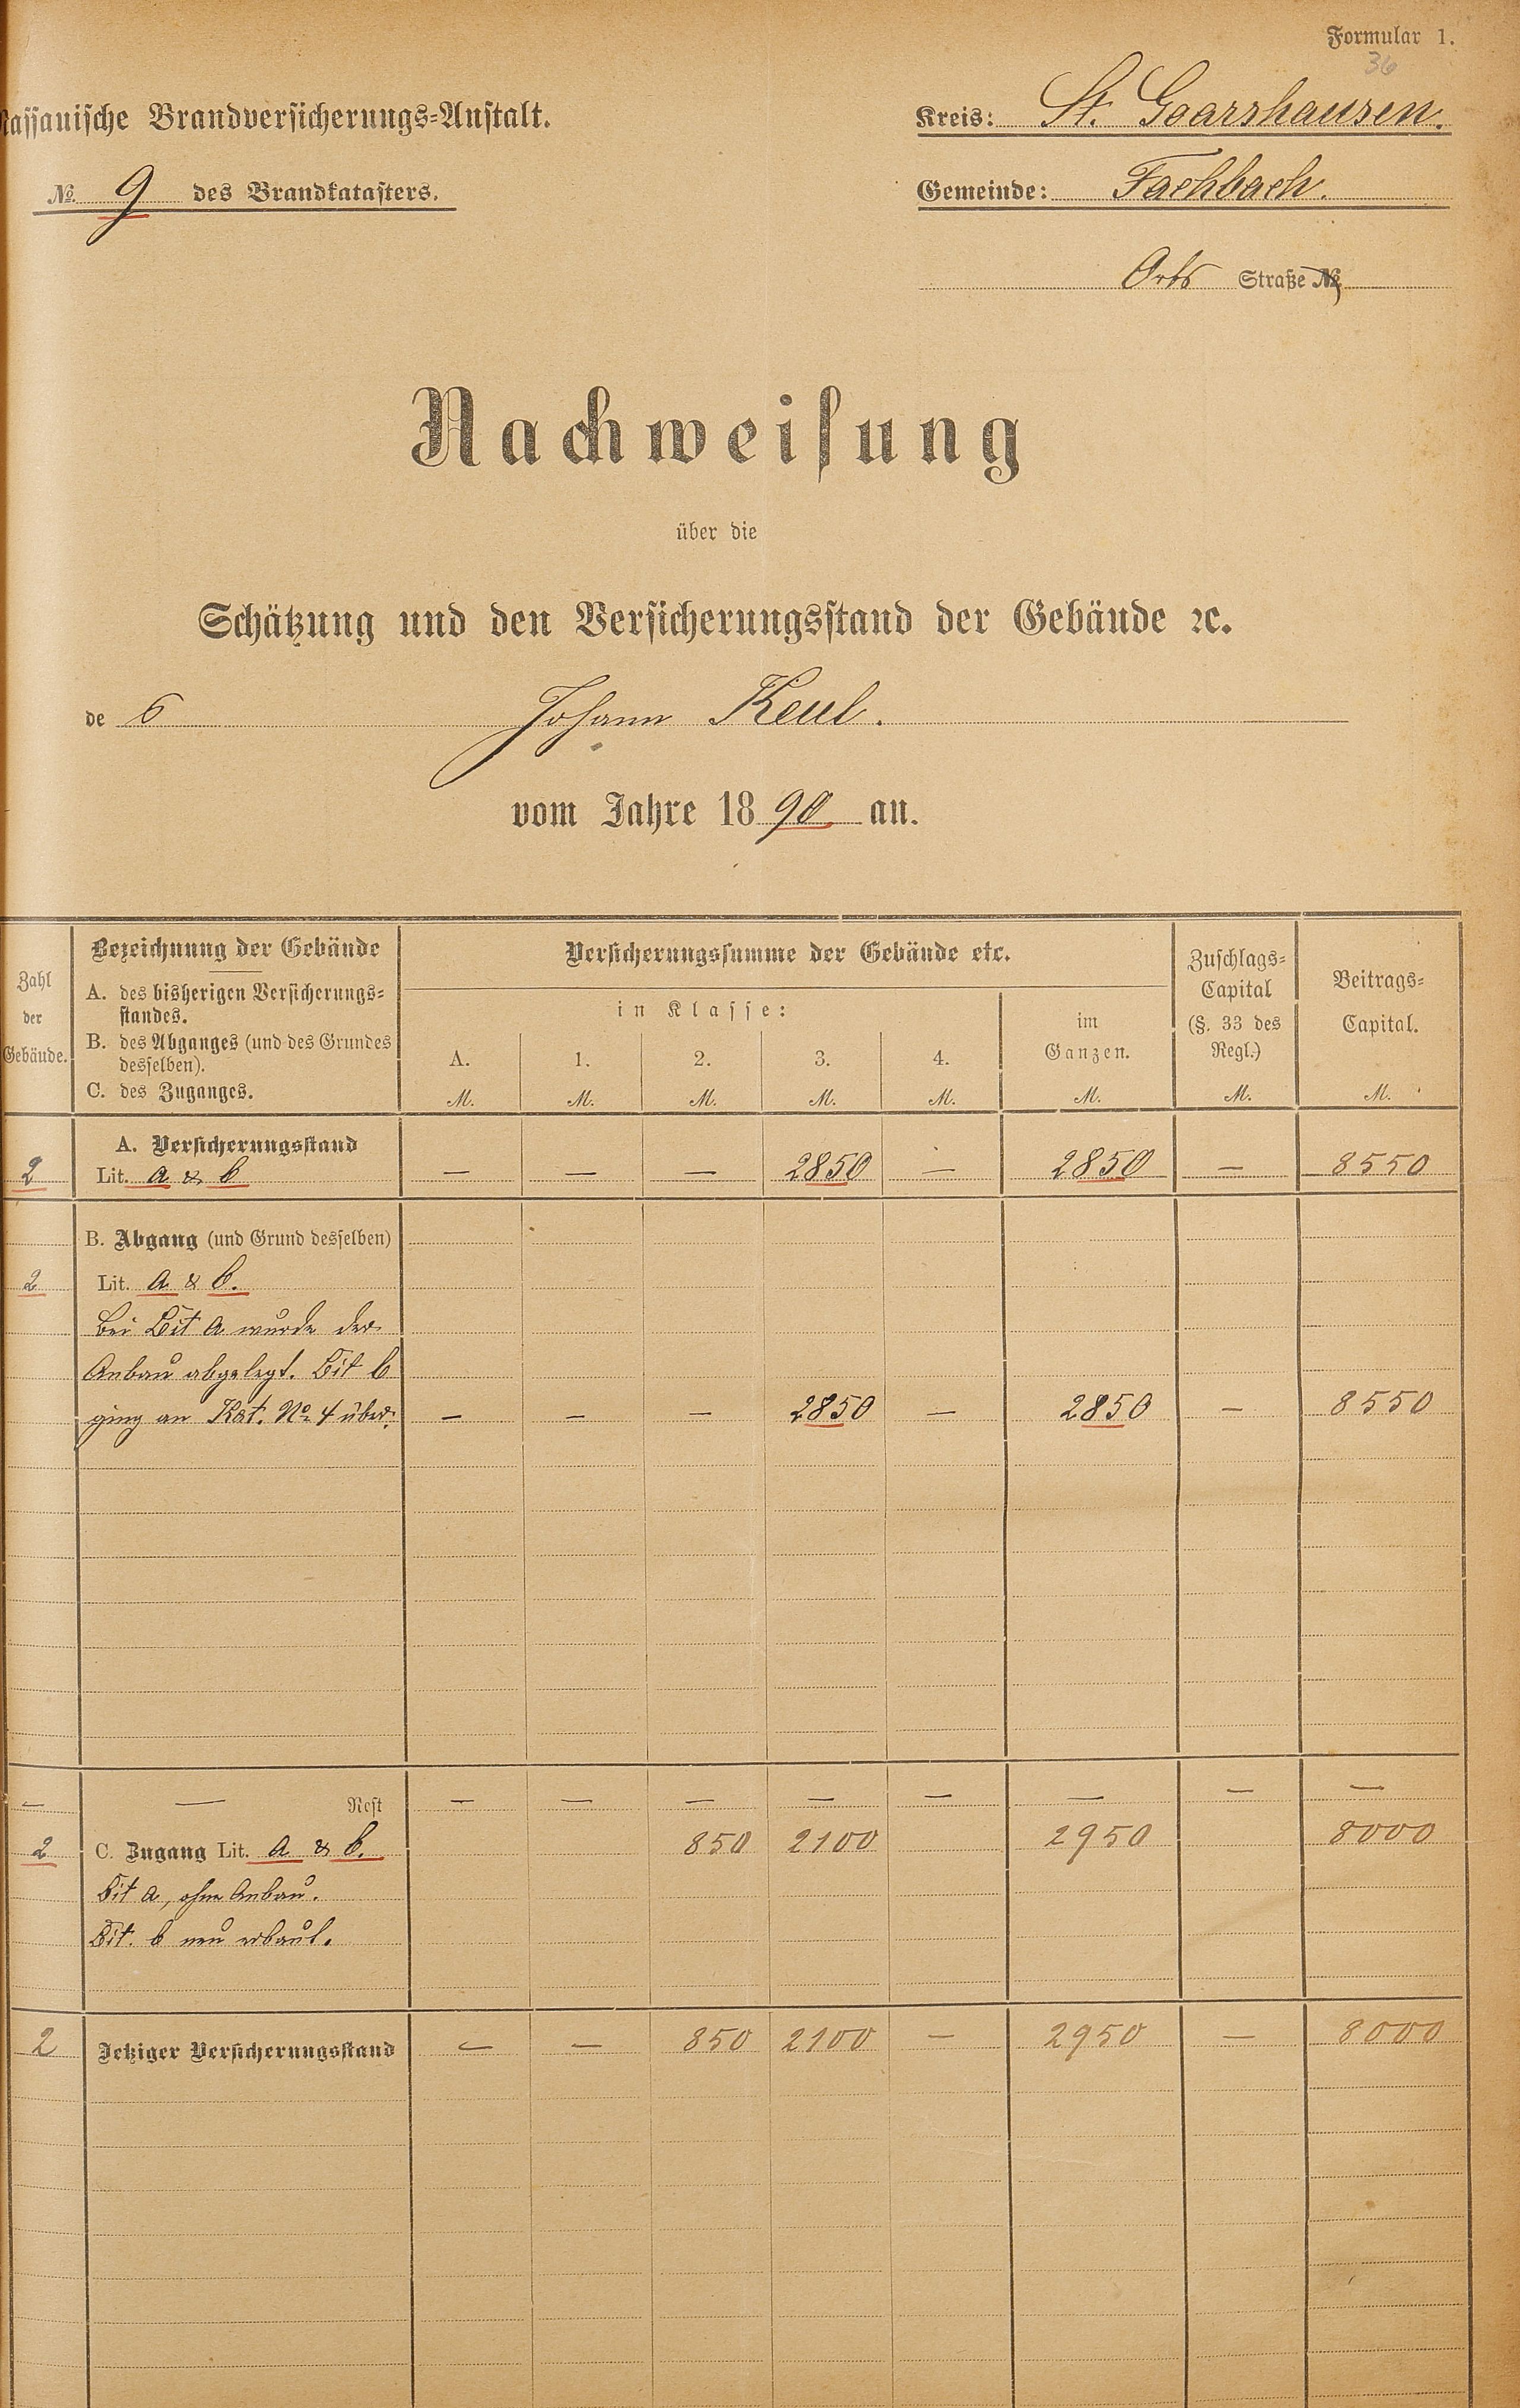 Formular 1.
36
Nassauische Brandversicherungs-Anstalt.
Kreis: St. Goarshausen.
No. 9 des Brandkatasters.
Gemeinde: Fachbach.
Orts Straße No
Nachweisung
über die
Schätzung und den Versicherungsstand der Gebäude ꝛc.
des Johann Keul.
vom Jahre 1890 an.
Zahl der Gebäude.
Bezeichnung der Gebäude
A. des bisherigen Versicherungs-
standes.
B. des Abganges (und des Grundes
desselben).
C. des Zuganges.
Versicherungssumme der Gebäude etc.
in Klasse:
A. 1. 2. 3. 4.
im
Ganzen.
Zuschlags-
Capital
(§. 33 des
Regl.)
Beitrags-
Capital.
M. M. M. M. M. M. M. M.
A. Versicherungsstand
2 Lit. a & b — — — 2850 — 2850 — 8550
B. Abgang (und Grund desselben)
2 Lit. a & b.
Bei Lit a wurde der
Anbau abgelegt. Lit b
ging an Kat. No 4 über. — — — 2850 — 2850 — 8550
— — Rest — — — — — — — —
2 C. Zugang Lit. a & b. 850 2100 2950 8000
Lit a, ohne Anbau.
Lit. b neu erbaut.
2 Jetziger Versicherungsstand — — 850 2100 — 2950 — 8000